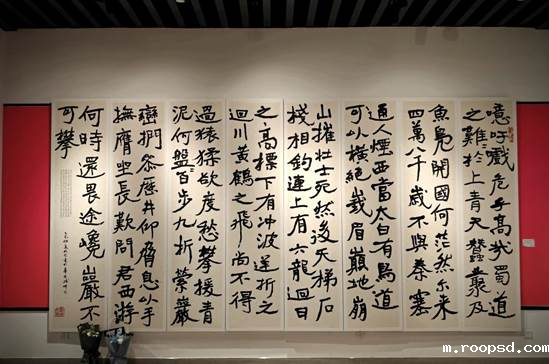 噫吁戲危乎高哉蜀道
之難於上青天蠶叢及
魚鳧開國何茫然尔来
四萬八千歲不與秦塞
通人煙西當太白有鳥道
可以橫絕峨眉巔地崩
山摧壯士死然後天梯石
棧相鈎連上有六龍迴日
之高標下有冲波逆折之
迴川黃鶴之飛尚不得
過猿猱欲度愁攀援青
泥何盤百步九折縈巖
巒捫參歷井仰脅息以手
撫膺坐長歎問君西遊
何時還畏途巉巖不
可攀
m.roopsd.com